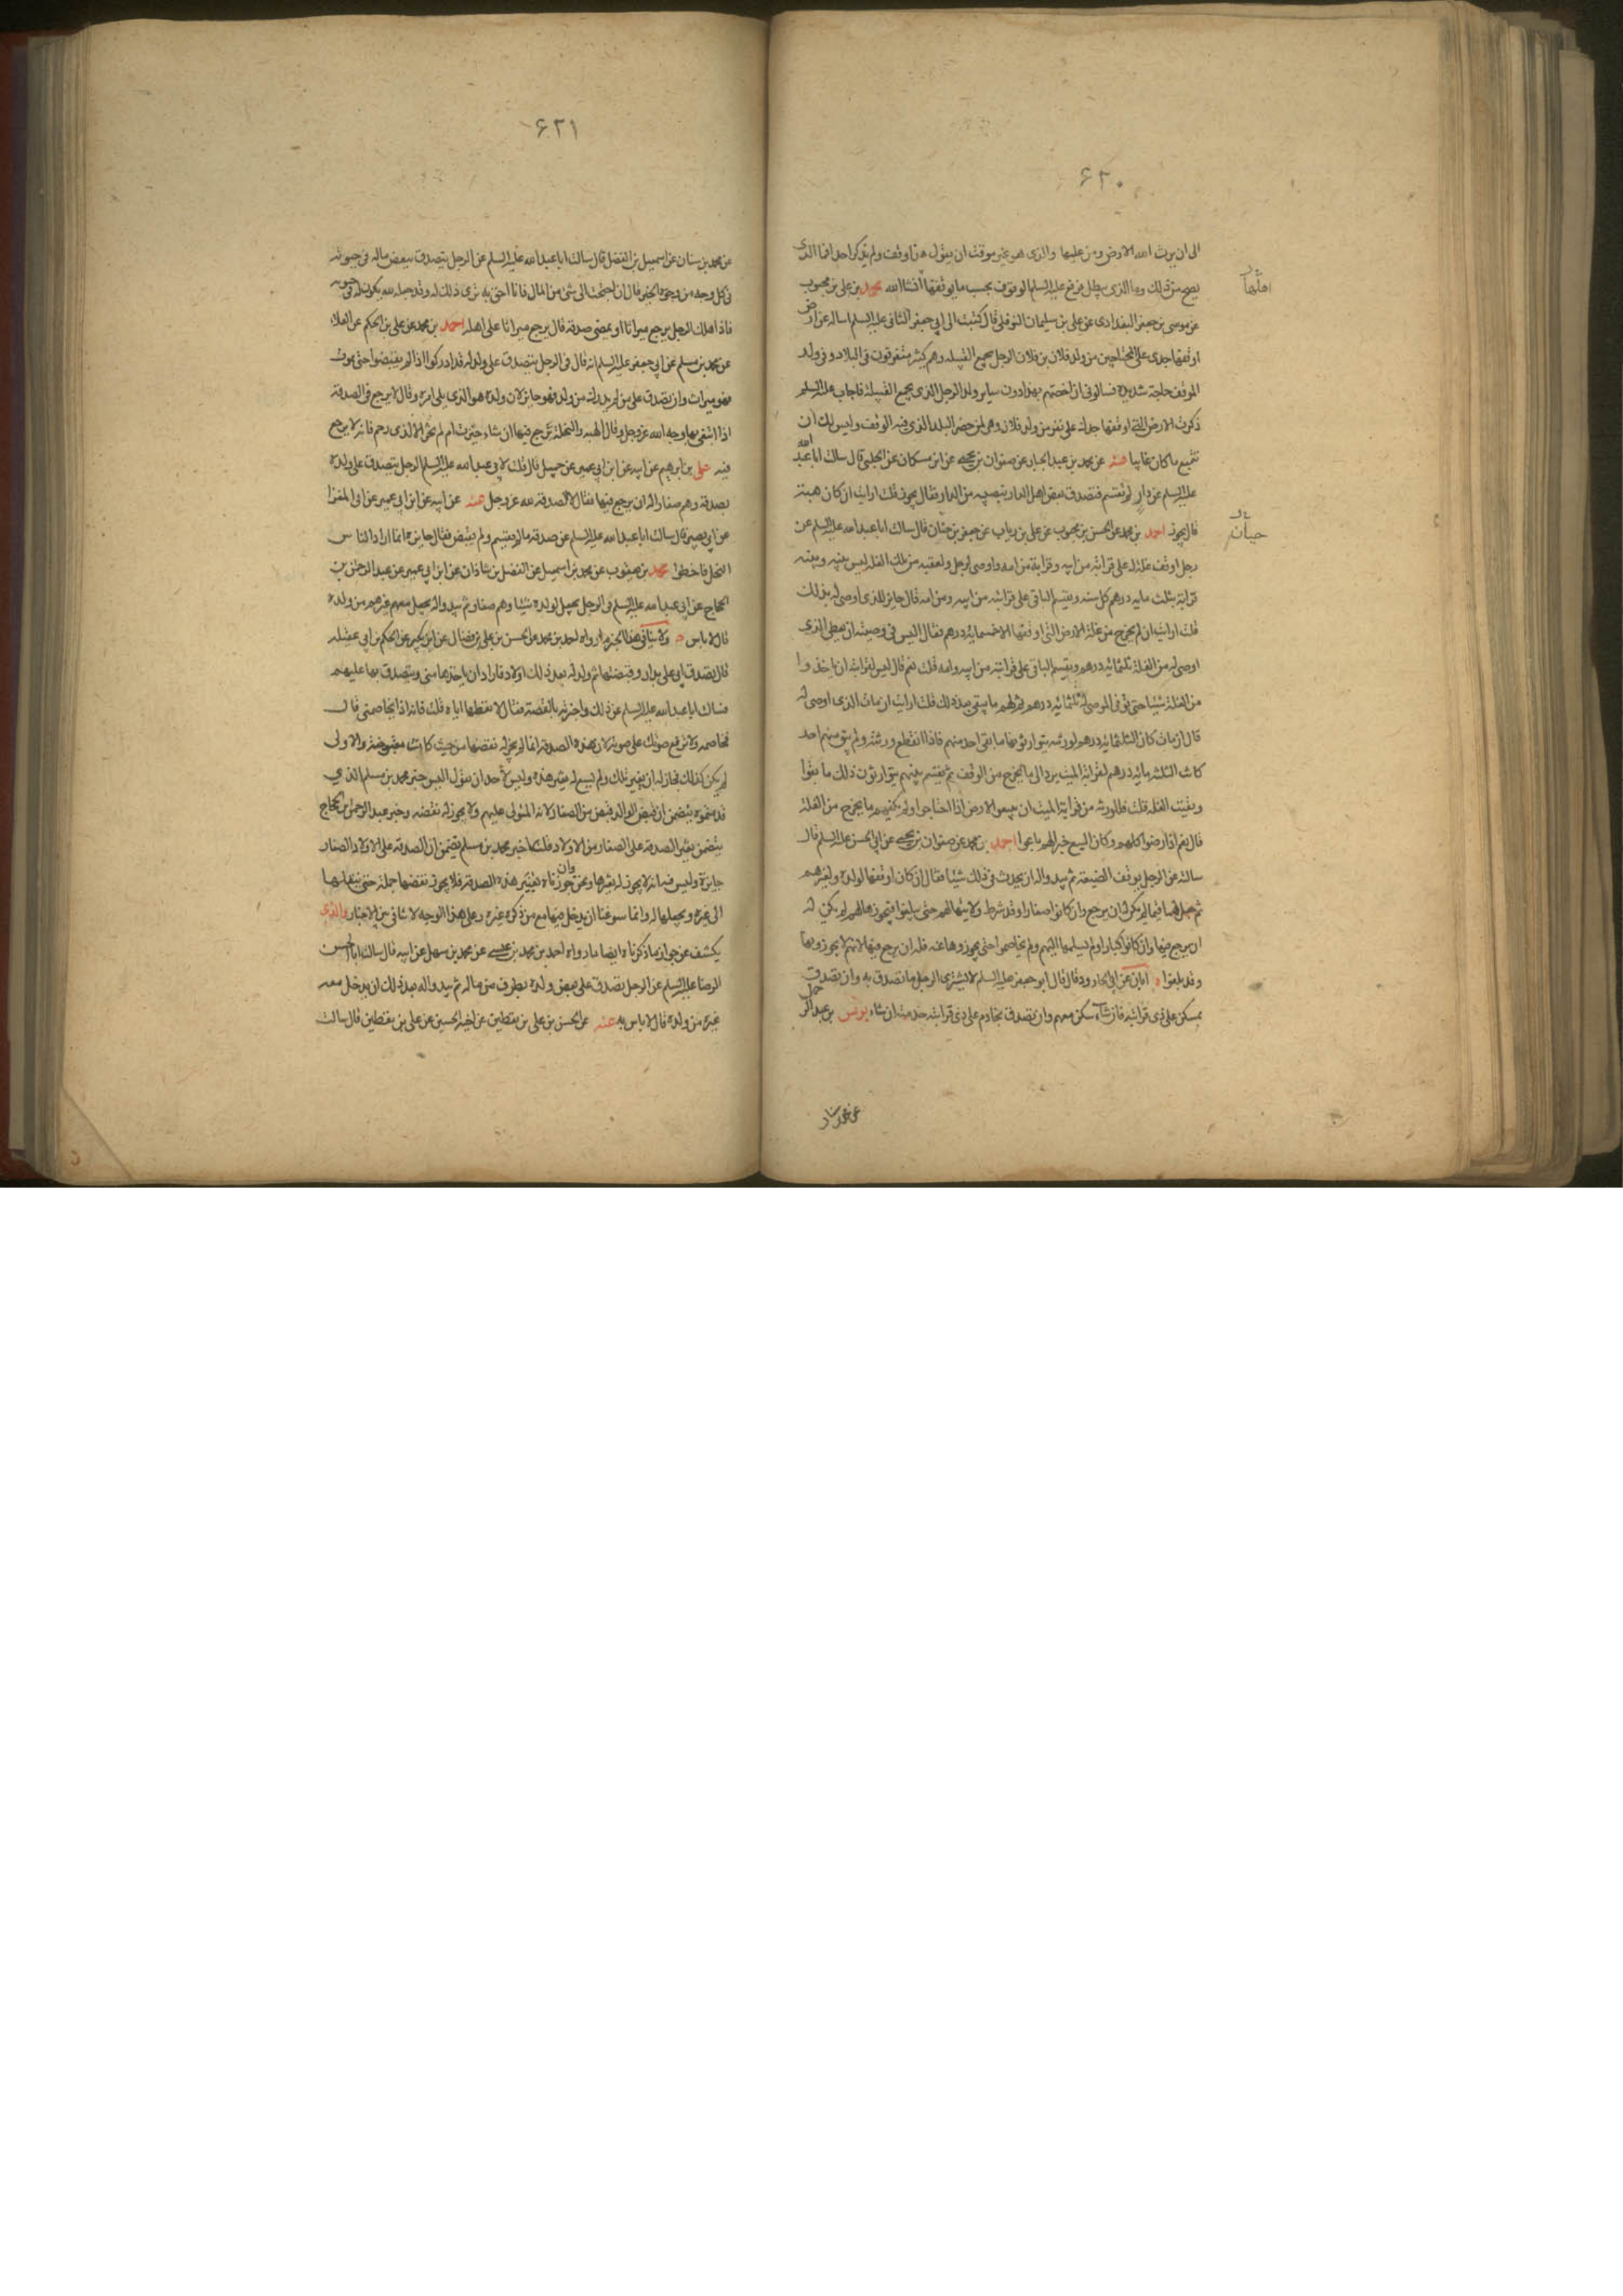 ۶۲۰
الی ان یرث الله الارض ومن علیها والذی هو غیر موقت ان یقول هذا وقف ولم یذکر احدا فما الذی
یصح من ذلک وما الذی یبطل فوقع علیه السلم الوقوف بحسب ما یوقفها انشاالله محمد بن علی بن محبوب
اهلها
عن موسی بن جعفر البغدادی عن علی بن سلیمان النوفلی قال کتبت الی ابی جعفر الثانی علیه السلم اساله عن ارض
اوقفها جدی علی المحتاجین من ولد فلان بن فلان الرجل یجمع القبیله وهم کثیر متفرقون فی البلاد وفی ولد
الموقف حاجة شدیدة فسالونی ان اخصهم بهذا دون سایر ولد الرجل الذی یجمع القبیلة فاجاب علیه السلم
ذکرت الارض التی اوقفها جدک علی فقر من ولد فلان وهی لمن حضر البلد الذی فیه الوقف ولیس لک ان
تتبع ما کان غایبا عنه عن محمد بن عبد الجبار عن صفوان بن یحیی عن ابن مسکان عن الحلبی قال سالت ابا عبد الله
علیه السلم عن دار لم تقسم فتصدق بعض اهل الدار بنصیبه من الدار فقال یجوز قلت ارایت ان کان هبته
قال یجوز احمد بن محمد عن الحسن بن محبوب عن علی بن ریاب عن جعفر بن حنان قال سالت ابا عبد الله علیه السلم عن
حیان
رجل اوقف غلة له علی قرابته من ابیه وقرابة من امه واوصی لرجل ولعقبه من تلک الغله لیس بینه وبینه
قرابة بثلث مایه درهم کل سنه ویقسم الباقی علی قرابته من ابیه ومن امه قال جایز للذی اوصی له بذلک
قلت ارایت ان لم یخرج من غلة الارض التی اوقفها الا خمسمایه درهم فقال الیس فی وصیته ان یعطی الذی
اوصی له من الغلة ثلثمایه درهم ویقسم الباقی علی قرابته من ابیه وامه قلت نعم قال لیس لقرابته ان یاخذوا
من الغلة شیئا حتی یوفی الموصی له ثلثمایه درهم ثم لهم ما یبقی بعد ذلک قلت ارایت ان مات الذی اوصی له
قال ان مات کان الثلثمایه درهم لورثته یتوارثونها ما بقی احد منهم فاذا انقطع ورثته ولم یبق منهم احد
کانت الثلثه مایه درهم لقرابة المیت یرد الی ما یخرج من الوقف ثم یقسم بینهم یتوارثون ذلک ما بقوا
وبقیت الغلة قلت فللورثه من قرابة المیت ان یبیعوا الارض اذا احتاجوا ولم یکفهم ما یخرج من الغلة
قال نعم اذا رضوا کلهم وکان البیع خیرا لهم باعوا احمد بن محمد عن صفوان بن یحیی عن ابی الحسن علیه السلم قال
سالته عن الرجل یوقف الضیعه ثم یبدو له ان یحدث فی ذلک شیئا فقال ان کان اوقفها لولده ولغیرهم
ثم جعل لها قیما لم یکن له ان یرجع وان کانوا صغارا وقد شرط ولایتها لهم حتی یبلغوا فیحوزها لهم لم یکن له
ان یرجع فیها وان کانوا کبارا ولم یسلمها الیهم ولم یخاصموا حتی یحوزوها عنه فله ان یرجع فیها لانهم لا یحوزونها
وقد بلغوا ابان عن ابی الجارود قال قال ابو جعفر علیه السلم لا یشتری الرجل ما تصدق به وان تصدق
بمسکن علی ذی قرابته فان شاء سکن معهم وان تصدق بخادم علی ذی قرابته خدمته ان شاء یونس بن عبد الرحمن
عن محمد سنان
۶۲۱
عن محمد بن سنان عن اسمعیل بن الفضل قال سالت ابا عبد الله علیه السلم عن الرجل یتصدق ببعض ماله فی حیوته
فی کل وجه من وجوه الخیر قال ان احتجت الی شئ من المال فانا احق به تری ذلک له وقد جعله لله یکون له فی حیوته
فاذا هلک الرجل یرجع میراثا او یمضی صدقه قال یرجع میراثا علی اهله احمد بن محمد عن علی بن الحکم عن العلاء
عن محمد بن مسلم عن ابی جعفر علیه السلم انه قال فی الرجل یتصدق علی ولد له قد ادرکوا اذا لم یقبضوا حتی یموت
فهو میراث وان تصدق علی من لم یدرک من ولده فهو جایز لان ولده هو الذی یلی امره وقال لا یرجع فی الصدقه
اذا ابتغی بها وجه الله عز وجل وقال الهبه والنحلة یرجع فیها ان شاء حیزت ام لم تحز الا لذی رحم فانه لا یرجع
فیه علی بن ابرهیم عن ابیه عن ابن ابی عمیر عن جمیل قال قلت لابی عبد الله علیه السلم الرجل یتصدق علی ولده
بصدقه وهم صغار اله ان یرجع فیها فقال لا الصدقه لله عز وجل عنه عن ابیه عن ابن ابی عمیر عن ابی المغرا
عن ابی بصیر قال سالت ابا عبد الله علیه السلم عن صدقه ما لم یقسم ولم یقبض فقال جایزه انما اراد الناس
النحل فاخطوا محمد بن یعقوب عن محمد بن اسمعیل عن الفضل بن شاذان عن ابن ابی عمیر عن عبد الرحمن بن
الحجاج عن ابی عبد الله علیه السلم فی الرجل یجعل لولده شیئا وهم صغار ثم یبدو له یجعل معهم غیرهم من ولده
قال لا باس ولا ینافی هذا الخبر ما رواه احمد بن محمد عن الحسن بن علی بن فضال عن ابن بکیر عن الحکم بن ابی عقیله
قال تصدق ابی علی بدار وقبضتها ثم ولد له بعد ذلک اولاد فاراد ان یاخذها منی ویتصدق بها علیهم
فسالت ابا عبد الله علیه السلم عن ذلک واخبرته بالقصة فقال لا تعطها ایاه قلت فانه اذا یخاصمنی قال
فخاصمه ولا ترفع صوتک علی صوته لان هذه الصدقه انما لم یجز له نقضها من حیث کانت مقبوضة والاولی
لم یکن کذلک فجاز له ان یغیر تلک ولم یسغ له تغییر هذه ولیس لأحد ان یقول الیس خبر محمد بن مسلم الذی
قدمتموه یتضمن ان قبض الوالد قبض من الصغار لانه المتولی علیهم ولا یجوز له نقضه وخبر عبد الرحمن بن الحجاج
یتضمن تغییر الصدقه علی الصغار من الاولاد قلنا خبر محمد بن مسلم یتضمن ان الصدقه علی الاولاد الصغار
جایزة ولیس فیه انه لا یجوز له تغییرها ونحن وان جوزناه تغییر هذه الصدقه فلا یجوز نقضها جملة حتی ینقلها
الی غیره ویجعلها له وانما سوغنا ان یدخل فیها مع من ذکره غیره وعلی هذا الوجه لا تنافی بین الاخبار والذی
یکشف عن جواز ما ذکرناه ایضا ما رواه احمد بن محمد بن عیسی عن محمد بن سهل عن ابیه قال سالت ابا الحسن
الرضا علیه السلم عن الرجل یتصدق علی بعض ولده بطرف من ماله ثم یبدو له بعد ذلک ان یدخل معه
غیره من ولده قال لا باس به عنه عن الحسن بن علی بن یقطین عن اخیه الحسین عن علی بن یقطین قال سالت